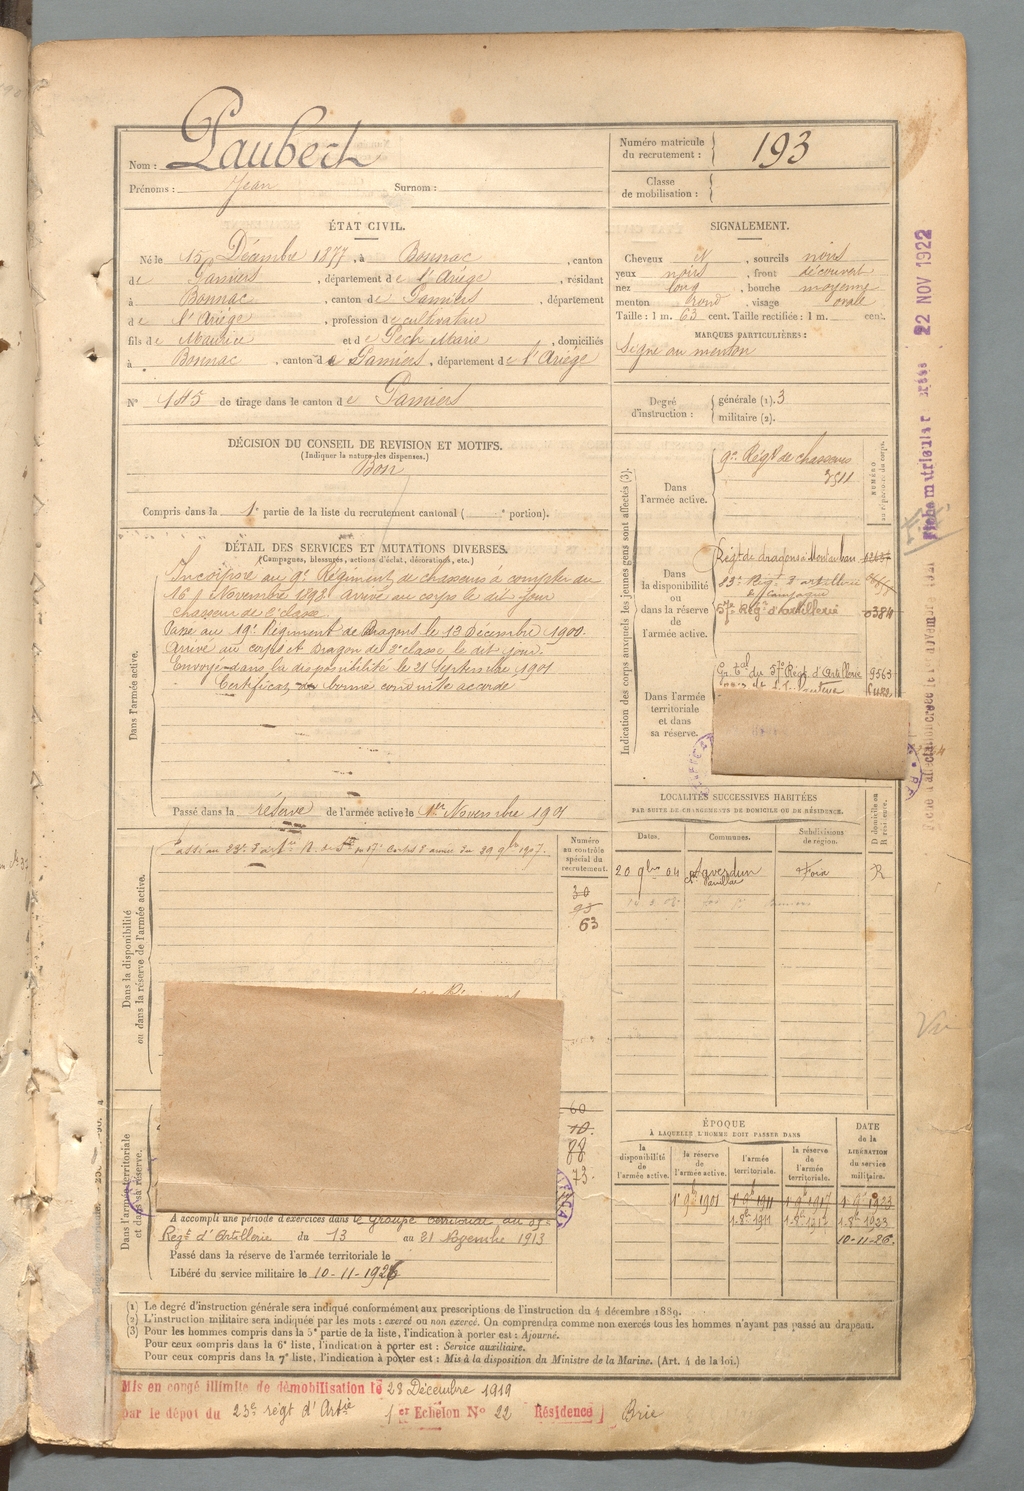 Nom : Laubert
Prénoms : Jean Surnom :
Numéro matricule du recrutement : 193
Classe de mobilisation :
ÉTAT CIVIL.
Né le 15 Décembre 1877, à Bonnac, canton
de Pamiers, département de l'Ariège, résidant
à Bonnac, canton de Pamiers, département
de l'Ariège, profession de cultivateur
fils de Maurice et de Pech Marie, domiciliés
à Bonnac, canton de Pamiers, département de l'Ariège
N° 145 de tirage dans le canton de Pamiers
SIGNALEMENT.
Cheveux N, sourcils noirs
yeux noirs, front découvert
nez long, bouche moyenne
menton rond, visage ovale
Taille : 1 m. 63 cent. Taille rectifiée : 1 m. cent.
MARQUES PARTICULIÈRES :
Signe au menton
Degré d'instruction : générale (1). 3
militaire (2).
DÉCISION DU CONSEIL DE REVISION ET MOTIFS.
(Indiquer la nature des dispenses.)
Bon
Compris dans la 1e partie de la liste du recrutement cantonal ( portion).
DÉTAIL DES SERVICES ET MUTATIONS DIVERSES.
(Campagnes, blessures, actions d'éclat, décorations, etc.)
Dans l'armée active.
Incorporé au 9e Régiment de chasseurs à compter du
16 Novembre 1898. Arrivé au corps le dit jour
chasseur de 2e classe.
Passé au 19e Régiment de Dragons le 13 Décembre 1900.
Arrivé au corps et Dragon de 2e classe le dit jour.
Envoyé dans la disponibilité le 21 Septembre 1901
Certificat de bonne conduite accordé
Passé dans la réserve de l'armée active le 1er Novembre 1901
Indication des corps auxquels les jeunes gens sont affectés (3).
NUMÉRO au répertoire du corps.
Dans l'armée active.
9e Régt de chasseurs
3511
Dans la disponibilité ou dans la réserve de l'armée active.
Régt de dragons à Montauban
23e Régt d'artillerie
de Campagne
57e Régt d'Artillerie 0384
Dans l'armée territoriale et dans sa réserve.
Gr. tal du 57e Régt d'Artillerie 9563
LOCALITÉS SUCCESSIVES HABITÉES
PAR SUITE DE CHANGEMENTS DE DOMICILE OU DE RÉSIDENCE.
Dates. Communes. Subdivisions de région. D domicile ou R résidence.
20 9bre 04 Saverdun Foix R
Dans la disponibilité ou dans la réserve de l'armée active.
Numéro au contrôle spécial du recrutement.
30
93
63
Dans l'armée territoriale et dans sa réserve.
60
10.
88
73.
A accompli une période d'exercices dans le Groupe territorial du 57e
Régt d'Artillerie du 13 au 21 Novembre 1913
Passé dans la réserve de l'armée territoriale le
Libéré du service militaire le 10-11-1926
ÉPOQUE
À LAQUELLE L'HOMME DOIT PASSER DANS
la disponibilité de l'armée active. la réserve de l'armée active. l'armée territoriale. la réserve de l'armée territoriale. DATE de la LIBÉRATION du service militaire.
1er 9bre 1901 1er 9bre 1911 1er 9bre 1917 1er 9bre 1923
1. 8bre 1911 1. 8bre 1917 1. 8bre 1923
10-11-26.
(1) Le degré d'instruction générale sera indiqué conformément aux prescriptions de l'instruction du 4 décembre 1889.
(2) L'instruction militaire sera indiquée par les mots : exercé ou non exercé. On comprendra comme non exercés tous les hommes n'ayant pas passé au drapeau.
(3) Pour les hommes compris dans la 5e partie de la liste, l'indication à porter est : Ajourné.
Pour ceux compris dans la 6e liste, l'indication à porter est : Service auxiliaire.
Pour ceux compris dans la 7e liste, l'indication à porter est : Mis à la disposition du Ministre de la Marine. (Art. 4 de la loi.)
Mis en congé illimité de démobilisation le 28 Décembre 1919
par le dépôt du 23e regt d'Artie 1er Echelon N° 22 Résidence Brie
22 NOV 1922